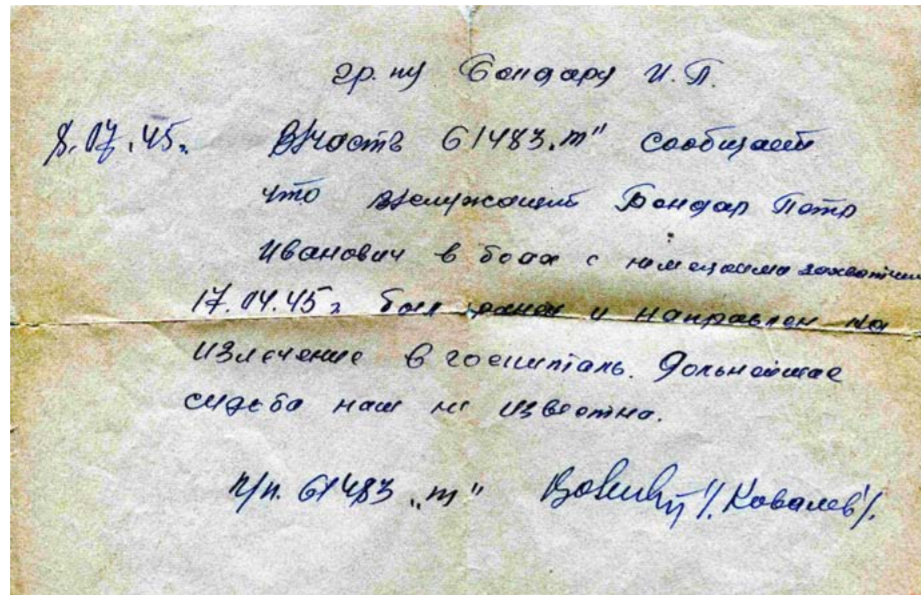 гр. ну Бондару И. П.
8.07.45г. В/часть 61483 „т" сообщает
что в/служащий Бондар Петр
Иванович в боях с немецкими захватчиками
17.04.45г был ранен и направлен на
излечение в госпиталь. Дольнейшае
судьба нам не известна.
п/п. 61483 „т" /Ковалев/.